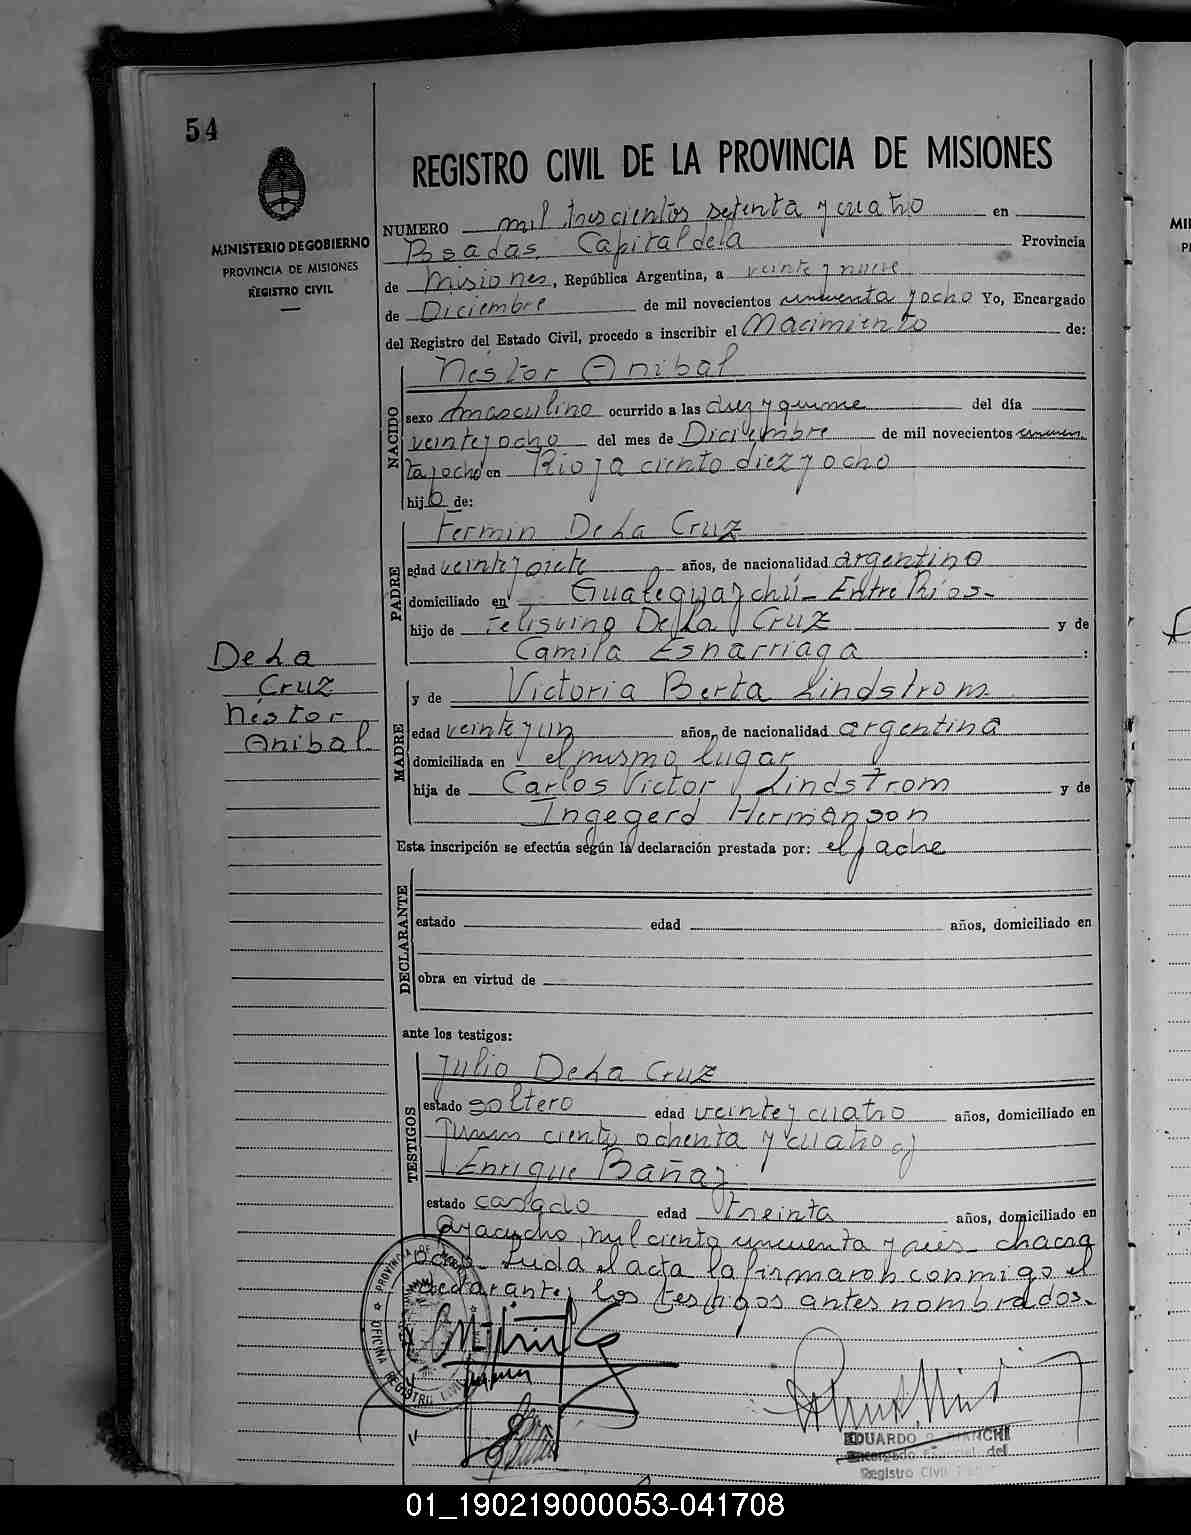 54
MINISTERIO DE GOBIERNO
PROVINCIA DE MISIONES
REGISTRO CIVIL
De La
Cruz
Néstor
Anibal
REGISTRO CIVIL DE LA PROVINCIA DE MISIONES
NUMERO mil trescientos setenta y cuatro en
Posadas, Capital de la Provincia
de Misiones, República Argentina, a veinte y nueve
de Diciembre de mil novecientos cincuenta y ocho Yo, Encargado
del Registro del Estado Civil, procedo a inscribir el Nacimiento de:
NACIDO
Néstor Anibal
sexo masculino ocurrido a las diez y quince del día
veinte y ocho del mes de Diciembre de mil novecientos cincuen
ta y ocho en Rioja ciento diez y ocho
hijo de:
PADRE
Fermin De La Cruz
edad veinte y siete años, de nacionalidad argentino
domiciliado en Gualeguaychú - Entre Ríos -
hijo de De La Cruz y de
Camila Esnarriaga :
MADRE
y de Victoria Berta Lindstrom
edad veinte y un años, de nacionalidad argentina
domiciliada en el mismo lugar
hija de Carlos Victor Lindstrom y de
Ingegerd Hermanson
Esta inscripción se efectúa según la declaración prestada por: el padre
DECLARANTE
estado edad años, domiciliado en
obra en virtud de
ante los testigos:
TESTIGOS
Julio De La Cruz
estado soltero edad veinte y cuatro años, domiciliado en
Junin ciento ochenta y cuatro y
Enrique Bañay
estado casado edad treinta años, domiciliado en
Ayacucho mil ciento cincuenta y seis - chacra
Leida el acta la firmaron conmigo el
declarante y los testigos antes nombrados.
OFICINA REGISTRO CIVIL
EDUARDO BIANCHI
Encargado Especial del
Registro Civil
MI
P
01_190219000053-041708